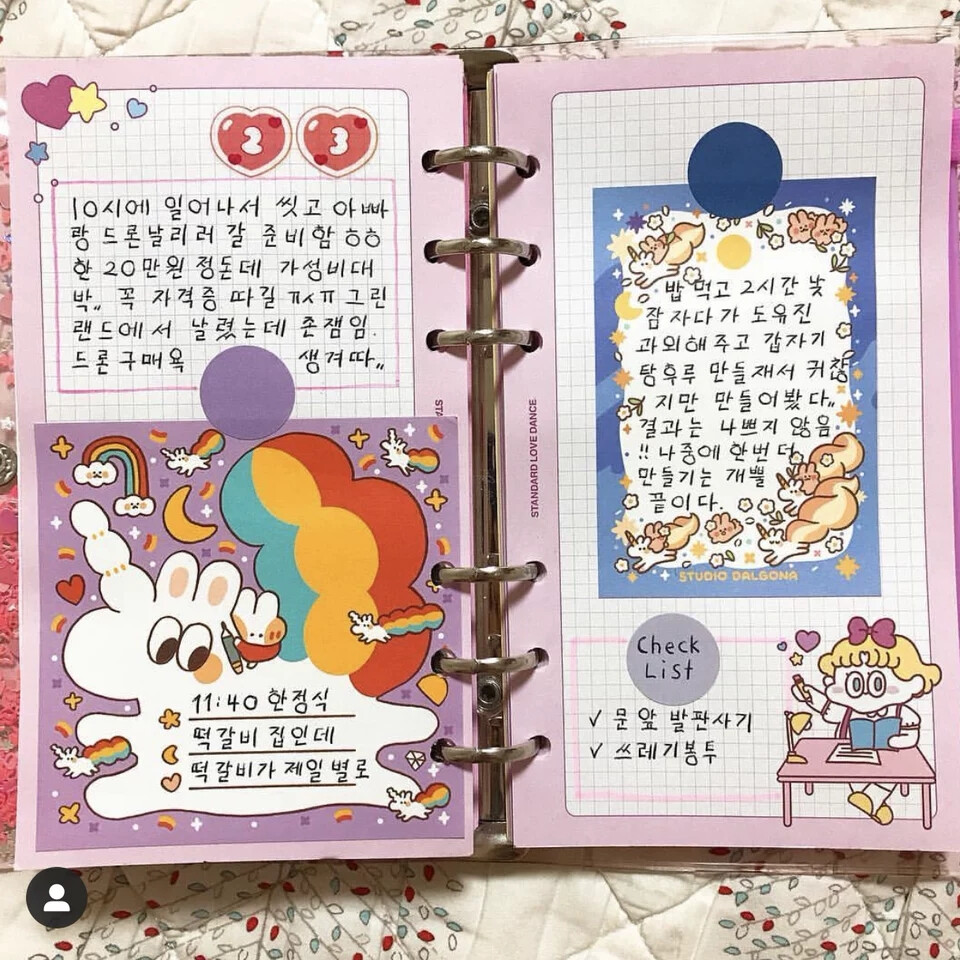 2 3
10시에 일어나서 씻고 아빠
랑 드론날리러 갈 준비함 ㅎㅎ
한 20만원 정돈데 가성비대
박,, 꼭 자격증 따길 ㅠㅅㅠ 그린
랜드에서 날렸는데 존잼임.
드론구매욕 생겨따,,
11:40 한정식
떡갈비 집인데
떡갈비가 제일 별로
STANDARD LOVE DANCE
밥 먹고 2시간 낮
잠 자다가 도유진
과외해주고 갑자기
탕후루 만들재서 귀찮
지만 만들어봤다,,
결과는 나쁘지 않음
!! 나중에 한번 더
만들기는 개뿔
끝이다.
STUDIO DALGONA
Check
List
✓ 문 앞 발판사기
✓ 쓰레기봉투